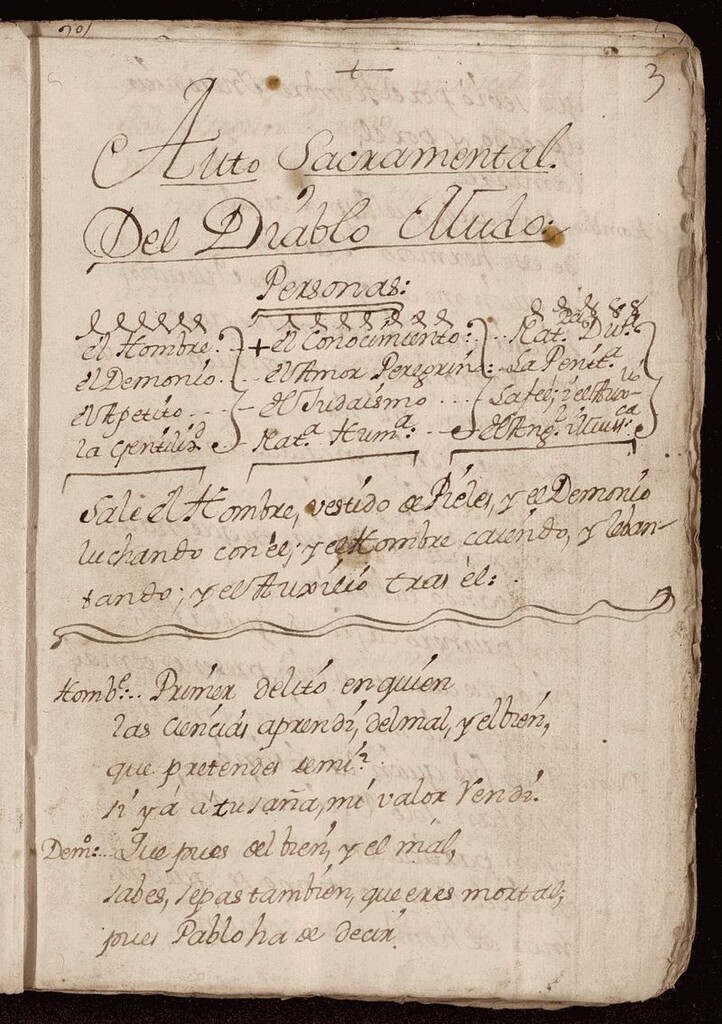 3
Auto Sacramental.
Del Diablo Mudo:
Personas:
el Hombre. - + el Conocimiento: .. Nat. Div.ª
el Demonio. - - el Amor Peregrino: - La Penit.ª
el Apetito - - - - el Judaismo - - - La fee; y el Aux.º
la Gentilid.d - Nat.ª Hum.ª - - - el Ang. Mus.ca
Sale el Hombre, vestido de Pieles, y el Demonio
luchando con él; y el Hombre caiendo, y leban-
tando; y el Auxilio tras él:
Homb.e.. Primer delito en quien
las ciencias aprendi, del mal, y el bien,
que pretendes de mi?
si yá á tu saña, mi valor rendi.
Dem.o:.. Que pues del bien, y el mal,
sabes, sepas tambien, que eres mortal;
pues Pablo ha de decir